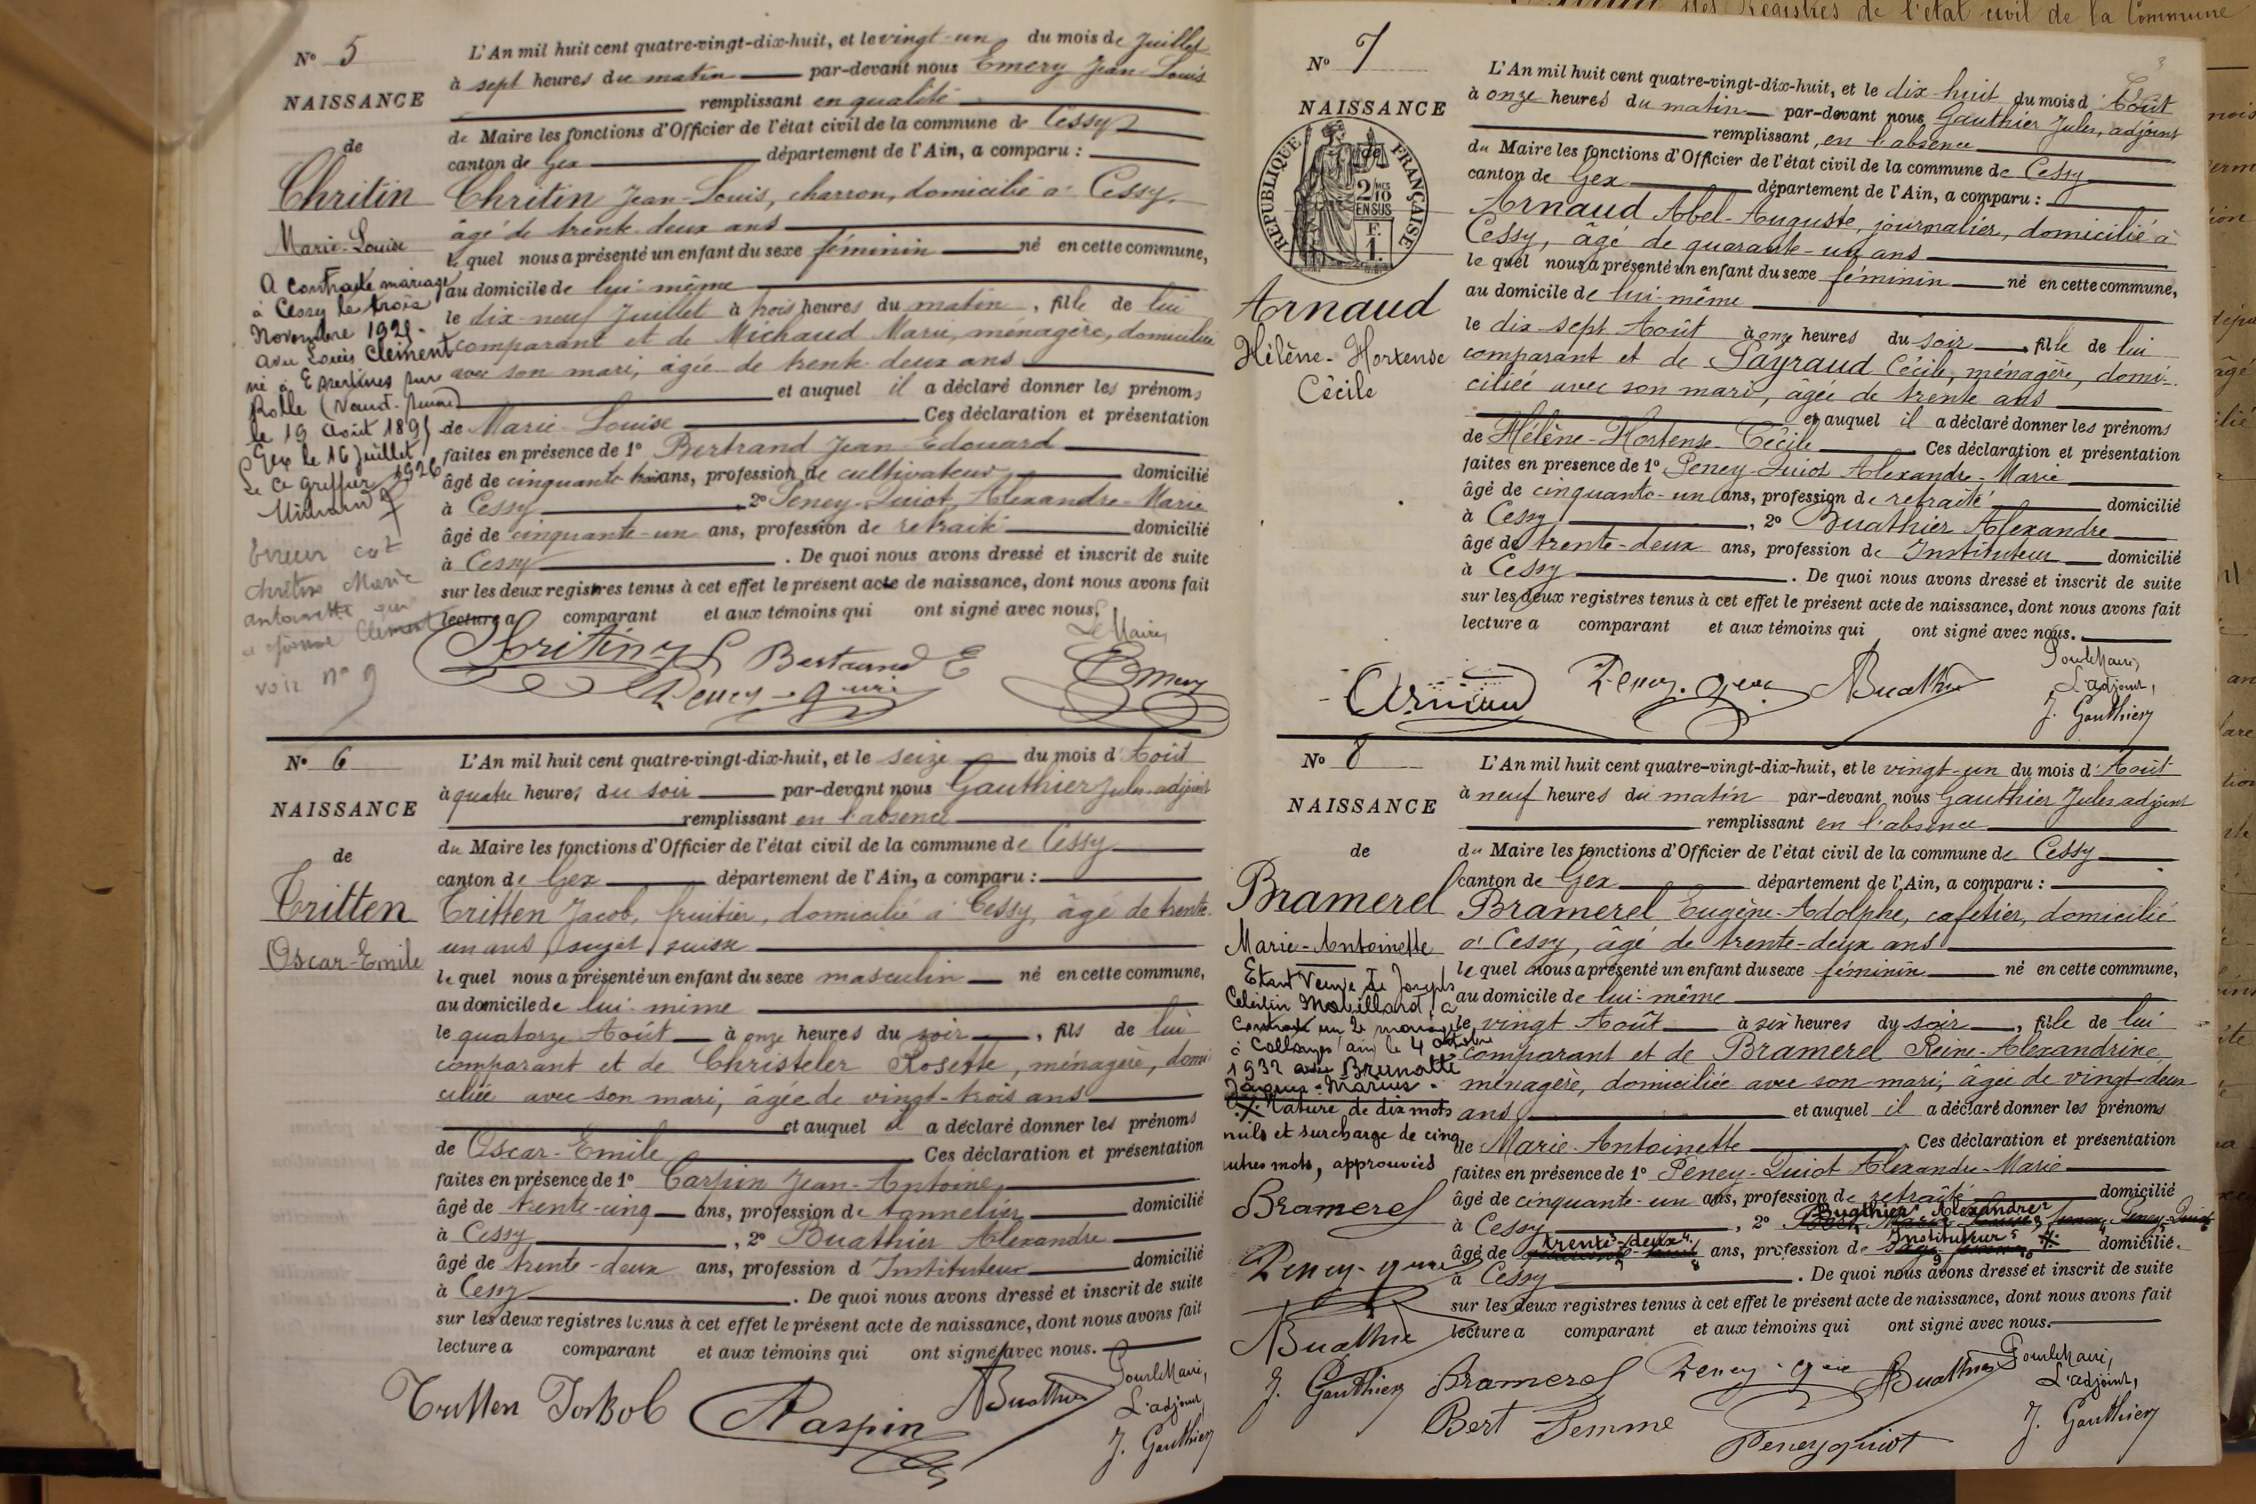 des Registres de l'état civil de la Commune
N° 5
NAISSANCE
de
Chritin
Marie-Louise
A contracté mariage
à Cessy le trois
Novembre 1921.
avec Louis Clément
né à Essertines sur
Rolle (Vaud-Suisse)
le 19 Août 1895
Gex le 16 Juillet
1926
Le Ce Greffier
Michaud
Erreur c'est
Chritin Marie
antoinette qui
a épousé Clément
voir n° 9
L'An mil huit cent quatre-vingt-dix-huit, et le vingt-un du mois de Juillet
à sept heures du matin par-devant nous Emery Jean-Louis
remplissant en qualité
de Maire les fonctions d'Officier de l'état civil de la commune de Cessy
canton de Gex département de l'Ain, a comparu :
Chritin Jean-Louis, charron, domicilié à Cessy,
âgé de trente deux ans
le quel nous a présenté un enfant du sexe féminin né en cette commune,
au domicile de lui-même
le dix-neuf Juillet à trois heures du matin, fille de lui
comparant et de Michaud Marie, ménagère, domiciliée
avec son mari, âgée de trente-deux ans
et auquel il a déclaré donner les prénoms
de Marie-Louise Ces déclaration et présentation
faites en présence de 1° Bertrand Jean-Edouard
âgé de cinquante-trois ans, profession de cultivateur domicilié
à Cessy 2° Peney-Quiot, Alexandre-Marie
âgé de cinquante-un ans, profession de retraité domicilié
à Cessy . De quoi nous avons dressé et inscrit de suite
sur les deux registres tenus à cet effet le présent acte de naissance, dont nous avons fait
lecture a comparant et aux témoins qui ont signé avec nous.
Le Maire,
Chritin J L Bertrand E Emery
Peney-Quiot
N° 6
NAISSANCE
de
Tritten
Oscar-Emile
L'An mil huit cent quatre-vingt-dix-huit, et le seize du mois d'Août
à quatre heures du soir par-devant nous Gauthier Jules adjoint
remplissant en l'absence
du Maire les fonctions d'Officier de l'état civil de la commune de Cessy
canton de Gex département de l'Ain, a comparu :
Tritten Jacob, fruitier, domicilié à Cessy, âgé de trente-
un ans, sujet suisse
le quel nous a présenté un enfant du sexe masculin né en cette commune,
au domicile de lui-même
le quatorze Août à onze heures du soir, fils de lui
comparant et de Christeler Rosette, ménagère, domi
ciliée avec son mari, âgée de vingt-trois ans
et auquel il a déclaré donner les prénoms
de Oscar-Emile Ces déclaration et présentation
faites en présence de 1° Carpin Jean-Antoine,
âgé de trente-cinq ans, profession de tonnelier domicilié
à Cessy, 2° Buathier Alexandre
âgé de trente-deux ans, profession d'Instituteur domicilié
à Cessy . De quoi nous avons dressé et inscrit de suite
sur les deux registres tenus à cet effet le présent acte de naissance, dont nous avons fait
lecture a comparant et aux témoins qui ont signé avec nous.
Pour le Maire,
L'adjoint,
Tritten Jakob Buathier J. Gauthier
N° 7
NAISSANCE
de
RÉPUBLIQUE FRANÇAISE
2/10 MES
EN SUS
F.
1.
Arnaud
Hélène-Hortense
Cécile
L'An mil huit cent quatre-vingt-dix-huit, et le dix-huit du mois d'Août
à onze heures du matin par-devant nous Gauthier Jules, adjoint
remplissant en l'absence
du Maire les fonctions d'Officier de l'état civil de la commune de Cessy
canton de Gex département de l'Ain, a comparu :
Arnaud Abel-Auguste, journalier, domicilié à
Cessy, âgé de quarante-un ans
le quel nous a présenté un enfant du sexe féminin né en cette commune,
au domicile de lui-même
le dix-sept Août à onze heures du soir, fille de lui
comparant et de Payraud Cécile, ménagère, domi-
ciliée avec son mari, âgée de trente ans
et auquel il a déclaré donner les prénoms
de Hélène-Hortense-Cécile Ces déclaration et présentation
faites en présence de 1° Peney-Quiot Alexandre-Marie
âgé de cinquante-un ans, profession de retraité domicilié
à Cessy, 2° Buathier Alexandre
âgé de trente-deux ans, profession de Instituteur domicilié
à Cessy . De quoi nous avons dressé et inscrit de suite
sur les deux registres tenus à cet effet le présent acte de naissance, dont nous avons fait
lecture a comparant et aux témoins qui ont signé avec nous.
Pour le Maire,
L'adjoint,
Arnaud Buathier J. Gauthier
N° 8
NAISSANCE
de
Bramerel
Marie-Antoinette
Etant Veuve de Joseph
Célestin Mavillard, a
contracté un 2e mariage
à Collonges (ain) le 4 octobre
1932 avec Brunotte
Jacques-Marius.
⁒ Rature de dix mots
nuls et surcharge de cinq
autres mots, approuvés
Bramerel
Buathier
J. Gauthier
L'An mil huit cent quatre-vingt-dix-huit, et le vingt-un du mois d'Août
à neuf heures du matin par-devant nous Gauthier Jules adjoint
remplissant en l'absence
du Maire les fonctions d'Officier de l'état civil de la commune de Cessy
canton de Gex département de l'Ain, a comparu :
Bramerel Eugène-Adolphe, cafetier, domicilié
à Cessy, âgé de trente-deux ans
le quel nous a présenté un enfant du sexe féminin né en cette commune,
au domicile de lui-même
le vingt Août à six heures du soir, fille de lui
comparant et de Bramerel Reine-Alexandrine
ménagère, domiciliée avec son mari, âgée de vingt-deux
ans, et auquel il a déclaré donner les prénoms
de Marie-Antoinette Ces déclaration et présentation
faites en présence de 1° Peney-Quiot Alexandre-Marie
âgé de cinquante-un ans, profession de retraité domicilié
à Cessy, 2° Buathier Alexandre
âgé de trente-deux ans, profession de Instituteur ⁒ domicilié
à Cessy . De quoi nous avons dressé et inscrit de suite
sur les deux registres tenus à cet effet le présent acte de naissance, dont nous avons fait
lecture a comparant et aux témoins qui ont signé avec nous.
Pour le Maire,
L'adjoint,
Bramerel Buathier J. Gauthier
Bert Femme Peneyquiot